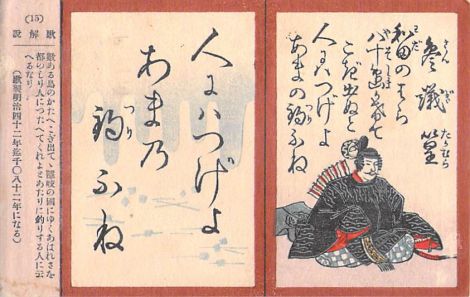 參議 篁
和田のはら
八十島かけて
こぎ出ぬと
人にはつげよ
あまの釣ふね
人にはつげよ
あま乃
釣ふね
(15)
歌解説
數ある島のかたへこぎ出て隠岐の國にゆくあはれさを
都のしり人につたへてくれよとあたりに釣する人に云
へるなり
(歌製明治四十二年迄千〇八十二年になる)